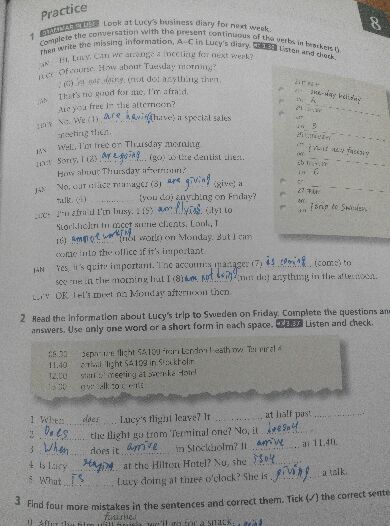 Practice
8
1 GRAMMAR IN USE Look at Lucy's business diary for next week.
Complete the conversation with the present continuous of the verbs in brackets ().
Then write the missing information, A–C in Lucy's diary. Listen and check.
JAN Hi, Lucy. Can we arrange a meeting for next week?
LUCY Of course. How about Tuesday morning?
I (0) 'm not doing (not do) anything then.
JAN That's no good for me, I'm afraid.
Are you free in the afternoon?
LUCY No. We (1) are having (have) a special sales
meeting then.
JAN Well, I'm free on Thursday morning.
LUCY Sorry, I (2) are going (go) to the dentist then.
How about Thursday afternoon?
JAN No, our office manager (3) are giving (give) a
talk. (4) (you do) anything on Friday?
LUCY I'm afraid I'm busy. I (5) am flying (fly) to
Stockholm to meet some clients. Look, I
(6) am not working (not work) on Monday. But I can
come into the office if it's important.
JAN Yes, it's quite important. The accounts manager (7) is coming (come) to
see me in the morning but I (8) am not doing (not do) anything in the afternoon.
LUCY OK. Let's meet on Monday afternoon then.
one-day holiday
A
B
visit new factory
C
Jong to Sweden
2 Read the information about Lucy's trip to Sweden on Friday. Complete the questions and
answers. Use only one word or a short form in each space. 3.37 Listen and check.
08.30 departure flight SA109 from London Heathrow, Terminal 4
11.40 arrival flight SA109 in Stockholm
12.00 start of meeting at Svenska Hotel
15.00 give talk to clients
1 When does Lucy's flight leave? It at half past
2 Does the flight go from Terminal one? No, it doesn't
3 When does it arrive in Stockholm? It arrive at 11.40.
4 Is Lucy staying at the Hilton Hotel? No, she isn't
5 What is Lucy doing at three o'clock? She is giving a talk.
3 Find four more mistakes in the sentences and correct them. Tick (✓) the correct sentences.
finishes
0 After the film will finish, we'll go for a snack.